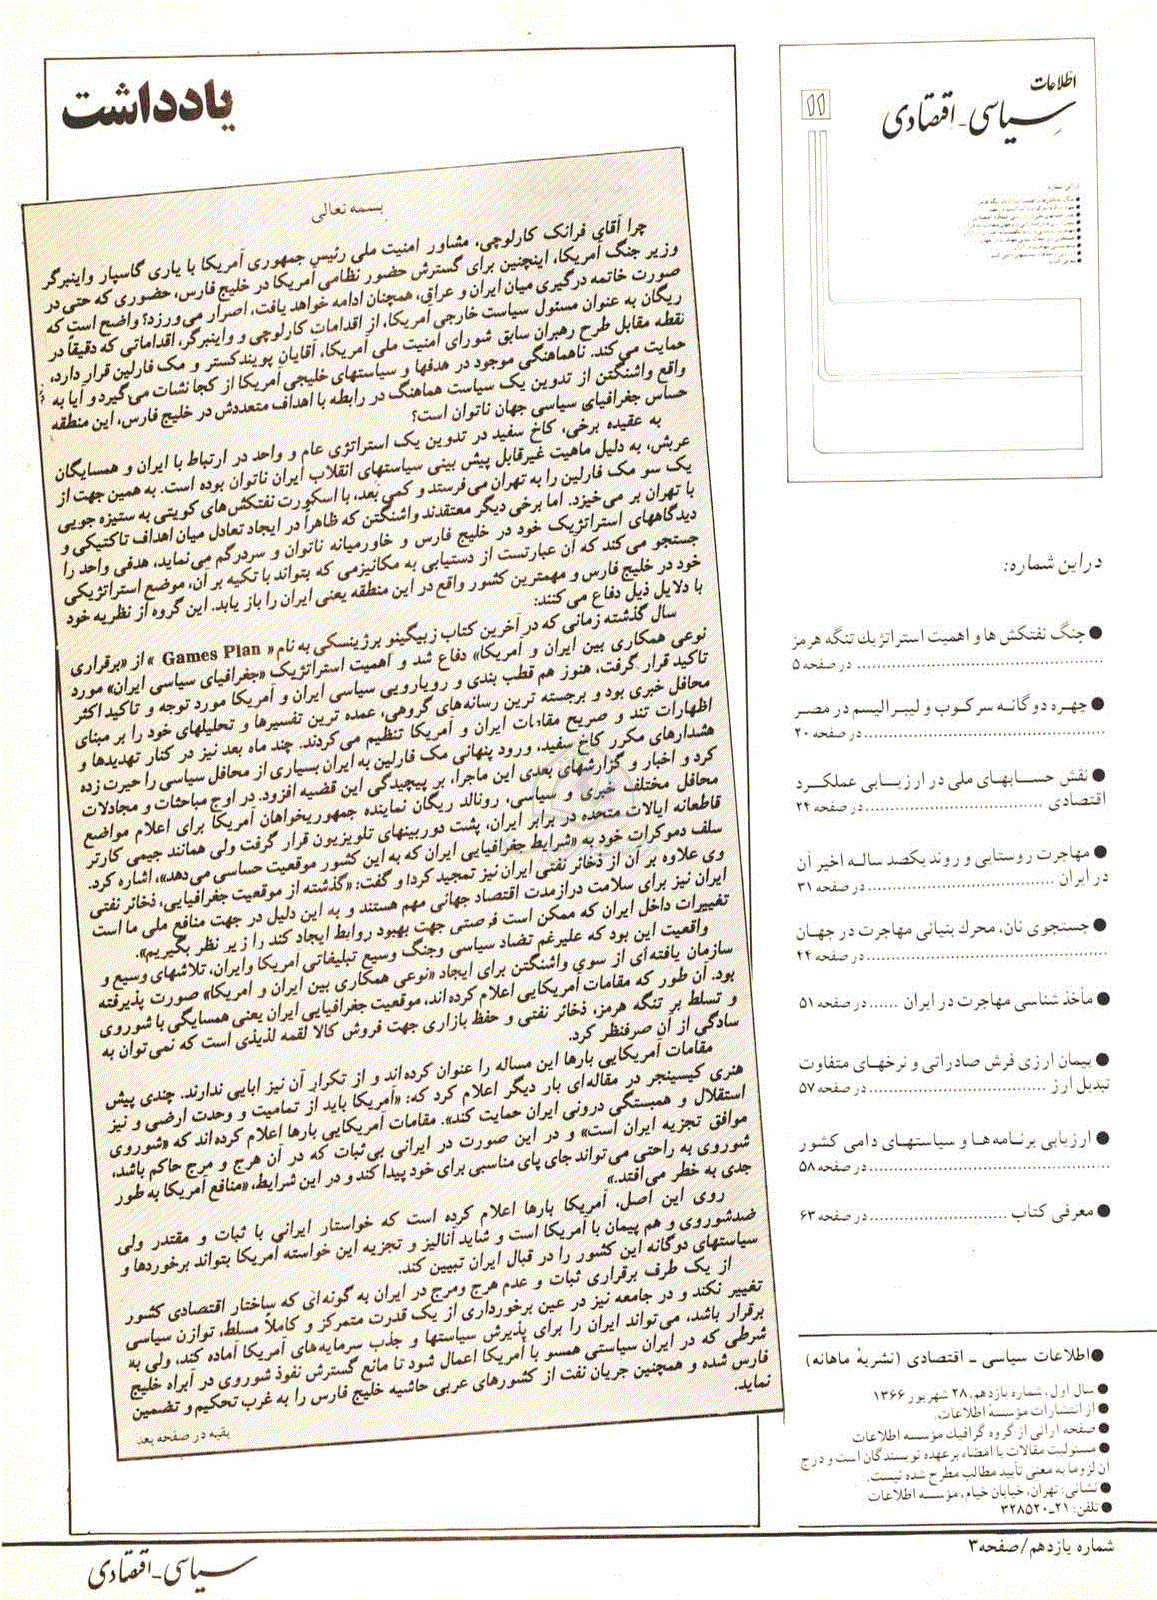 یادداشت
بسمه تعالی
چرا آقای فرانک کارلوچی، مشاور امنیت ملی رئیس جمهوری آمریکا با یاری گاسپار واینبرگر
وزیر جنگ آمریکا، اینچنین برای گسترش حضور نظامی آمریکا در خلیج فارس، حضوری که حتی در
صورت خاتمه درگیری میان ایران و عراق، همچنان ادامه خواهد یافت، اصرار می‌ورزد؟ واضح است که
ریگان به عنوان مسئول سیاست خارجی آمریکا، از اقدامات کارلوچی و واینبرگر، اقداماتی که دقیقاً در
نقطه مقابل طرح رهبران سابق شورای امنیت ملی آمریکا، آقایان پویندکستر و مک فارلین قرار دارد،
حمایت می‌کند. ناهماهنگی موجود در هدفها و سیاستهای خلیجی آمریکا از کجا نشات می‌گیرد و آیا به
واقع واشنگتن از تدوین یک سیاست هماهنگ در رابطه با اهداف متعددش در خلیج فارس، این منطقه
حساس جغرافیای سیاسی جهان ناتوان است؟
به عقیده برخی، کاخ سفید در تدوین یک استراتژی عام و واحد در ارتباط با ایران و همسایگان
عربش، به دلیل ماهیت غیرقابل پیش بینی سیاستهای انقلاب ایران ناتوان بوده است. به همین جهت از
یک سو مک فارلین را به تهران می‌فرستد و کمی بعد، با اسکورت نفتکش‌های کویتی به ستیزه جویی
با تهران بر می‌خیزد. اما برخی دیگر معتقدند واشنگتن که ظاهراً در ایجاد تعادل میان اهداف تاکتیکی و
دیدگاههای استراتژیک خود در خلیج فارس و خاورمیانه ناتوان و سردرگم می‌نماید، هدفی واحد را
جستجو می‌کند که آن عبارتست از دستیابی به مکانیزمی که بتواند با تکیه بر آن، موضع استراتژیکی
خود در خلیج فارس و مهمترین کشور واقع در این منطقه یعنی ایران را باز یابد. این گروه از نظریه خود
با دلایل ذیل دفاع می‌کنند:
سال گذشته زمانی که در آخرین کتاب زبیگینو برژینسکی به نام « Games Plan » از «برقراری
نوعی همکاری بین ایران و آمریکا» دفاع شد و اهمیت استراتژیک «جغرافیای سیاسی ایران» مورد
تاکید قرار گرفت، هنوز هم قطب بندی و رویارویی سیاسی ایران و آمریکا مورد توجه و تاکید اکثر
محافل خبری بود و برجسته ترین رسانه‌های گروهی، عمده ترین تفسیرها و تحلیلهای خود را بر مبنای
اظهارات تند و صریح مقامات ایران و آمریکا تنظیم می‌کردند. چند ماه بعد نیز در کنار تهدیدها و
هشدارهای مکرر کاخ سفید، ورود پنهانی مک فارلین به ایران بسیاری از محافل سیاسی را حیرت زده
کرد و اخبار و گزارشهای بعدی این ماجرا، بر پیچیدگی این قضیه افزود. در اوج مباحثات و مجادلات
محافل مختلف خبری و سیاسی، رونالد ریگان نماینده جمهوریخواهان آمریکا برای اعلام مواضع
قاطعانه ایالات متحده در برابر ایران، پشت دوربینهای تلویزیون قرار گرفت ولی همانند جیمی کارتر
سلف دموکرات خود به «شرایط جغرافیایی ایران که به این کشور موقعیت حساسی می‌دهد»، اشاره کرد.
وی علاوه بر آن از ذخائر نفتی ایران نیز تمجید کرد! و گفت: «گذشته از موقعیت جغرافیایی، ذخائر نفتی
ایران نیز برای سلامت درازمدت اقتصاد جهانی مهم هستند و به این دلیل در جهت منافع ملی ما است
تغییرات داخل ایران که ممکن است فرصتی جهت بهبود روابط ایجاد کند را زیر نظر بگیریم».
واقعیت این بود که علیرغم تضاد سیاسی وجنگ وسیع تبلیغاتی آمریکا وایران، تلاشهای وسیع و
سازمان یافته‌ای از سوی واشنگتن برای ایجاد «نوعی همکاری بین ایران و امریکا» صورت پذیرفته
بود. آن طور که مقامات آمریکایی اعلام کرده‌اند، موقعیت جغرافیایی ایران یعنی همسایگی با شوروی
و تسلط بر تنگه هرمز، ذخائر نفتی و حفظ بازاری جهت فروش کالا لقمه لذیذی است که نمی‌توان به
سادگی از آن صرفنظر کرد.
مقامات آمریکایی بارها این مساله را عنوان کرده‌اند و از تکرار آن نیز ابایی ندارند. چندی پیش
هنری کیسینجر در مقاله‌ای بار دیگر اعلام کرد که: «آمریکا باید از تمامیت و وحدت ارضی و نیز
استقلال و همبستگی درونی ایران حمایت کند». مقامات آمریکایی بارها اعلام کرده‌اند که «شوروی
موافق تجزیه ایران است» و در این صورت در ایرانی بی‌ثبات که در آن هرج و مرج حاکم باشد،
شوروی به راحتی می‌تواند جای پای مناسبی برای خود پیدا کند و در این شرایط، «منافع آمریکا به طور
جدی به خطر می‌افتد.»
روی این اصل، آمریکا بارها اعلام کرده است که خواستار ایرانی با ثبات و مقتدر ولی
ضدشوروی و هم پیمان با آمریکا است و شاید آنالیز و تجزیه این خواسته امریکا بتواند برخوردها و
سیاستهای دوگانه این کشور را در قبال ایران تبیین کند.
از یک طرف برقراری ثبات و عدم هرج ومرج در ایران به گونه‌ای که ساختار اقتصادی کشور
تغییر نکند و در جامعه نیز در عین برخورداری از یک قدرت متمرکز و کاملاً مسلط، توازن سیاسی
برقرار باشد، می‌تواند ایران را برای پذیرش سیاستها و جذب سرمایه‌های آمریکا آماده کند، ولی به
شرطی که در ایران سیاستی همسو با آمریکا اعمال شود تا مانع گسترش نفوذ شوروی در آبراه خلیج
فارس شده و همچنین جریان نفت از کشورهای عربی حاشیه خلیج فارس را به غرب تحکیم و تضمین
نماید.
بقیه در صفحه بعد
اطلاعات
سیاسی-اقتصادی
۱۱
در این شماره
دراین شماره:
● جنگ نفتکش ها و اهمیت استراتژیك تنگه هرمز
................................................ در صفحه ۵
● چهـره دو گانـه سر کـوب و لیبـرالیسم در مصـر
................................................ در صفحه ۲۰
● نقش حسـابهـای ملی در ارزیـابی عملکـرد
اقتصادی ................................... در صفحه ۲۴
● مهاجرت روستایی و روند یکصد سالـه اخیر آن
در ایران ..................................... در صفحه ۳۱
● جستجوی نان، محرك بنیانی مهاجرت در جهان
................................................ در صفحه ۴۴
● مأخذ شناسی مهاجرت در ایران ...... در صفحه ۵۱
● پیمان ارزی فرش صادراتی و نرخهـای متفاوت
تبدیل ارز ................................... در صفحه ۵۷
● ارزیابی برنـامه‌هـا و سیاستهـای دامی کشور
................................................ در صفحه ۵۸
● معرفی کتاب ........................... در صفحه ۶۳
●اطلاعات سیاسی ـ اقتصادی (نشریهٔ ماهانه)
● سال اول، شماره یازدهم، ۲۸ شهریور ۱۳۶۶
● از انتشارات مؤسسهٔ اطلاعات.
● صفحه آرائی از گروه گرافیك مؤسسه اطلاعات
● مسئولیت مقالات با امضاء برعهده نویسندگان است و درج
آن لزوماً به معنی تأیید مطالب مطرح شده نیست.
● نشانی: تهران، خیابان خیام، مؤسسه اطلاعات
● تلفن: ۲۱ـ۳۲۸۵۲۰
شماره یازدهم/صفحه۳
سیاسی-اقتصادی